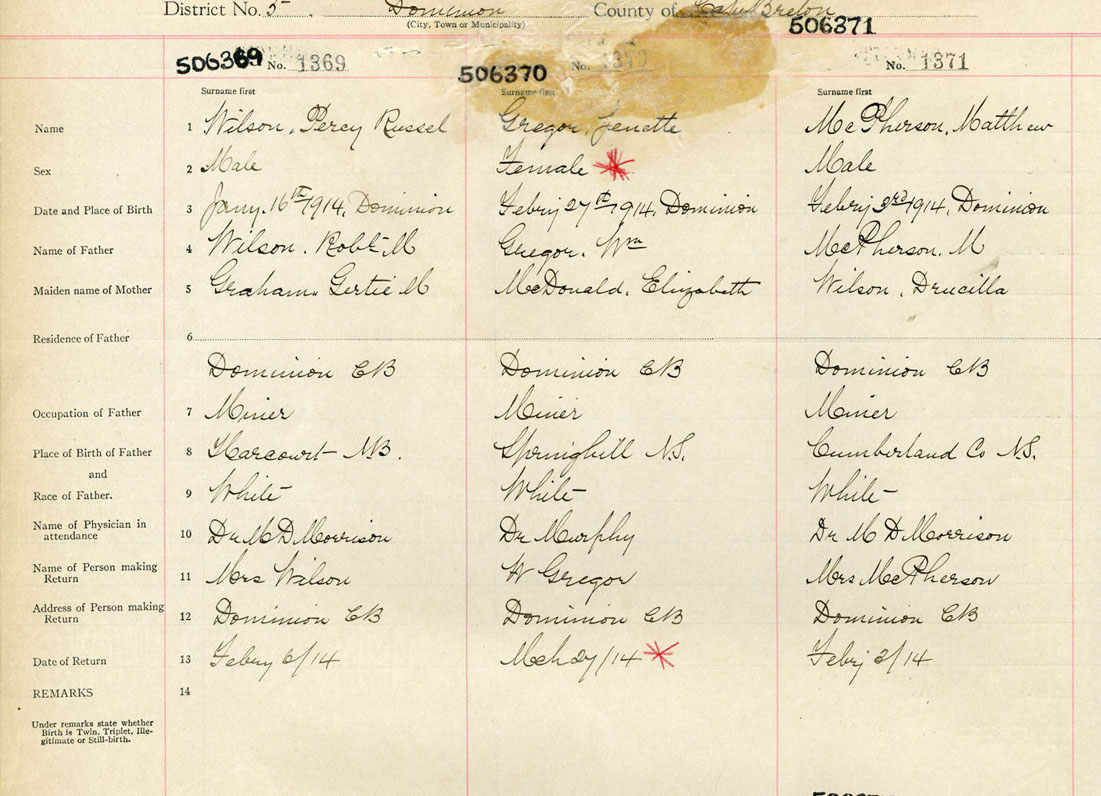 District No. 5 Dominion County of Cape Breton
(City, Town or Municipality)
506371
506369 No. 1369
506370 No. 1370
No. 1371
Surname first Surname first Surname first
Name 1 Wilson, Percy Russel Gregor, Jenette McPherson, Matthew
Sex 2 Male Female Male
Date and Place of Birth 3 Jany. 16th 1914, Dominion Febry 27th 1914, Dominion Febry 3rd 1914, Dominion
Name of Father 4 Wilson, Robt M Gregor, Wm McPherson, M
Maiden name of Mother 5 Graham, Gertie M McDonald, Elizabeth Wilson, Drucilla
Residence of Father 6
Dominion CB Dominion CB Dominion CB
Occupation of Father 7 Miner Miner Miner
Place of Birth of Father 8 Harcourt NB. Springhill N.S. Cumberland Co N.S.
and
Race of Father. 9 White White White
Name of Physician in
attendance 10 Dr M D Morrison Dr Murphy Dr M D Morrison
Name of Person making
Return 11 Mrs Wilson W Gregor Mrs McPherson
Address of Person making
Return 12 Dominion CB Dominion CB Dominion CB
Date of Return 13 Febry 6/14 Mch 27/14 Febry 3/14
REMARKS 14
Under remarks state whether
Birth is Twin, Triplet, Ille-
gitimate or Still-birth.